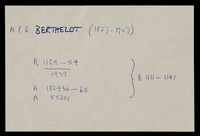 M. P. E. BERTHELOT (1827-1907)
B 1124-54
1939
A 182936-65
A 55201
B 1111-1141